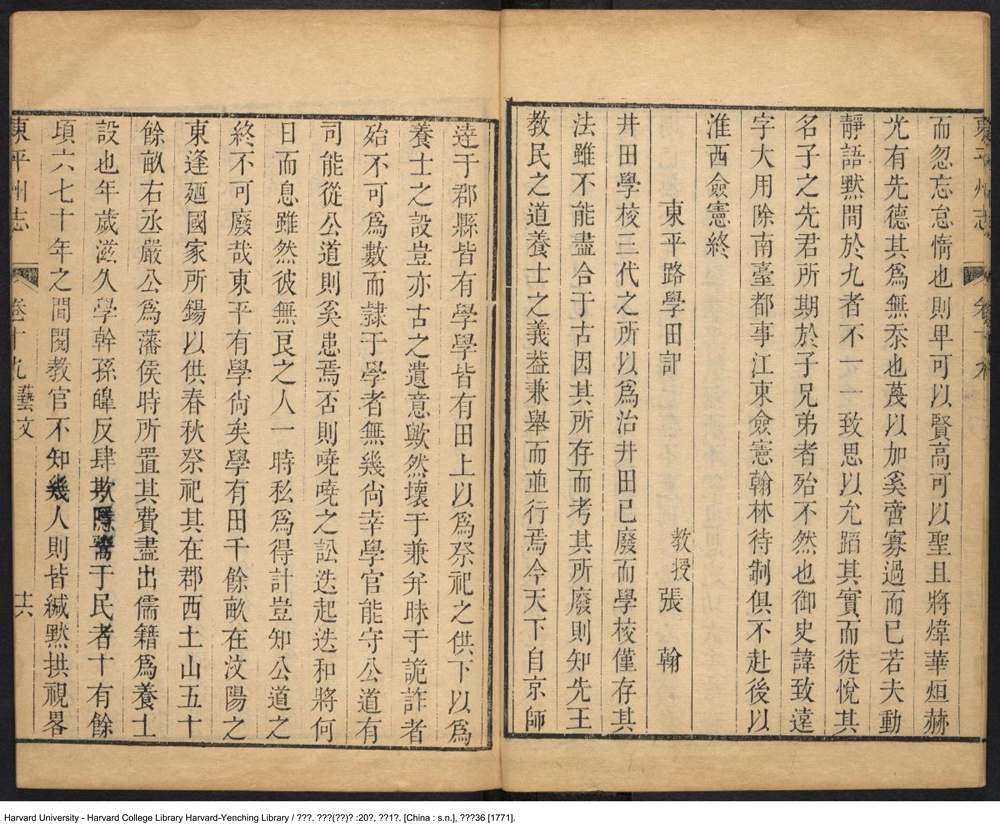 而忽忘怠惰也則卑可以賢高可以聖且將煒華烜赫
光有先德其為無忝也蔑以加奚啻寡過而已若夫動
靜語默間於九者不一一致思以允蹈其實而徒悅其
名子之先君所期於子兄弟者殆不然也御史諱致遠
字大用除南臺都事江東僉憲翰林待制俱不赴後以
淮西僉憲終
東平路學田記
教授張翰
井田學校三代之所以為治井田已廢而學校僅存其
法雖不能盡合于古因其所存而考其所廢則知先王
教民之道養士之義葢兼舉而並行焉今天下自京師
逹于郡縣皆有學學皆有田上以為祭祀之供下以為
養士之設豈亦古之遺意歟然壞于兼弁昧于詭詐者
殆不可為數而隸于學者無幾尚幸學官能守公道有
司能從公道則奚患焉否則嘵嘵之訟迭起迭和將何
日而息雖然彼無良之人一時私為得計豈知公道之
終不可廢哉東平有學尙矣學有田千餘畝在汶陽之
東逢廼國家所錫以供春秋祭祀其在郡西土山五十
餘畝右丞嚴公為藩侯時所置其費盡出儒籍為養士
設也年歲滋久學幹孫皡反肆欺隱鬻于民者十有餘
頃六七十年之間閱教官不知幾人則皆緘默拱視畧
東平州志
卷十九藝文
十六
Harvard University - Harvard College Library Harvard-Yenching Library / ???. ???(??)? :20?, ??1?. [China : s.n.], ???36 [1771].